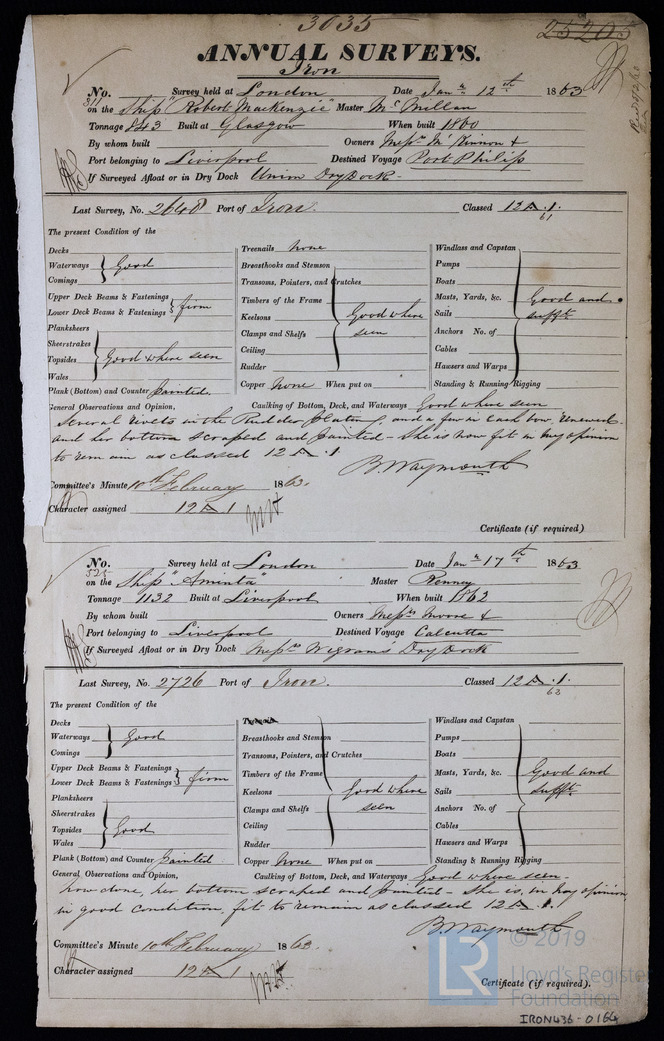 3035
25205
ANNUAL SURVEYS.
Iron
No. 311 Survey held at London Date Jany 12th 1863
on the Ship "Robert MacKenzie" Master McMillan
Tonnage 843 Built at Glasgow When built 1860
By whom built Owners Messrs McKinnon &
Port belonging to Liverpool Destined Voyage Port Philip
If Surveyed Afloat or in Dry Dock Union Dry Dock -
Last Survey, No. 2648 Port of Iron. Classed 12 A.1. 61
The present Condition of the
Decks
Waterways Good
Comings
Upper Deck Beams & Fastenings
Lower Deck Beams & Fastenings firm
Planksheers
Sheerstrakes
Topsides Good where seen
Wales
Plank (Bottom) and Counter Painted.
Treenails None
Breasthooks and Stemson
Transoms, Pointers, and Crutches
Timbers of the Frame
Keelsons Good where
Clamps and Shelfs seen
Ceiling
Rudder
Copper None When put on
Windlass and Capstan
Pumps
Boats
Masts, Yards, &c. Good and
Sails sufft
Anchors No. of
Cables
Hawsers and Warps
Standing & Running Rigging
General Observations and Opinion, Caulking of Bottom, Deck, and Waterways Good where seen
Several rivets in the Rudder Plating, and a few in each bow, renewed.
and her bottom scraped and painted - She is now fit in my opinion
to remain as classed 12 A.1
B. Waymouth
Committee's Minute 10th February 1863.
Character assigned 12 A 1
Certificate (if required)
No. 525 Survey held at London Date Jany 17th 1863
on the Ship "Aminta" Master Penney
Tonnage 1132 Built at Liverpool When built 1862
By whom built Owners Messrs Moore &
Port belonging to Liverpool Destined Voyage Calcutta
If Surveyed Afloat or in Dry Dock Messrs Wigrams Dry Dock
Last Survey, No. 2726 Port of Iron. Classed 12 A.1. 63
The present Condition of the
Decks
Waterways Good
Comings
Upper Deck Beams & Fastenings
Lower Deck Beams & Fastenings firm
Planksheers
Sheerstrakes
Topsides Good
Wales
Plank (Bottom) and Counter Painted
Treenails
Breasthooks and Stemson
Transoms, Pointers, and Crutches
Timbers of the Frame
Keelsons Good where
Clamps and Shelfs seen
Ceiling
Rudder
Copper None When put on
Windlass and Capstan
Pumps
Boats
Masts, Yards, &c. Good and
Sails sufft
Anchors No. of
Cables
Hawsers and Warps
Standing & Running Rigging
General Observations and Opinion, Caulking of Bottom, Deck, and Waterways Good where seen -
now done, her bottom scraped and painted - She is, in my opinion,
in good condition, fit to remain as classed 12 A.1.
B. Waymouth
Committee's Minute 10th February 1863.
Character assigned 12 A 1
Certificate (if required).
LR © 2019
Lloyd's Register
Foundation
IRON436-0164